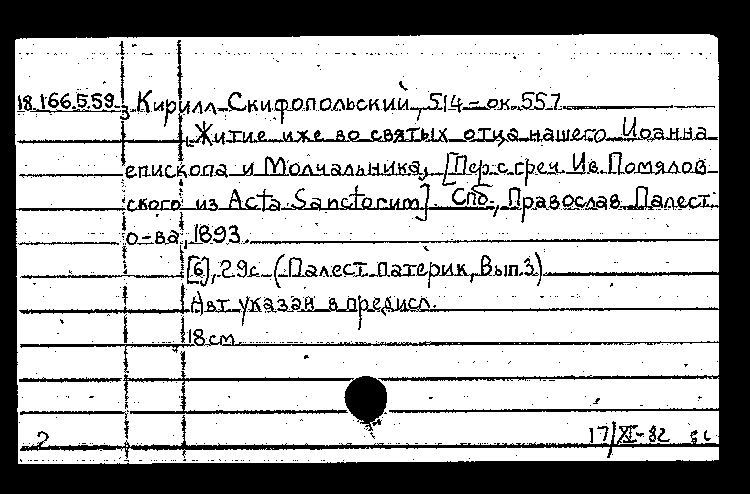 18.166.5.59 Кирилл Скифопольский, 514 – ок. 557
Житие иже во святых отца нашего Иоанна
епископа и Молчальника, [Пер. с греч. Ив. Помялов
ского из Acta Sanctorum]. Спб., Православ. Палест.
о-ва, 1893.
[6], 29с. (Палест. патерик, Вып. 3)
Авт. указан в предисл.
18 см.
2 17/XI-82